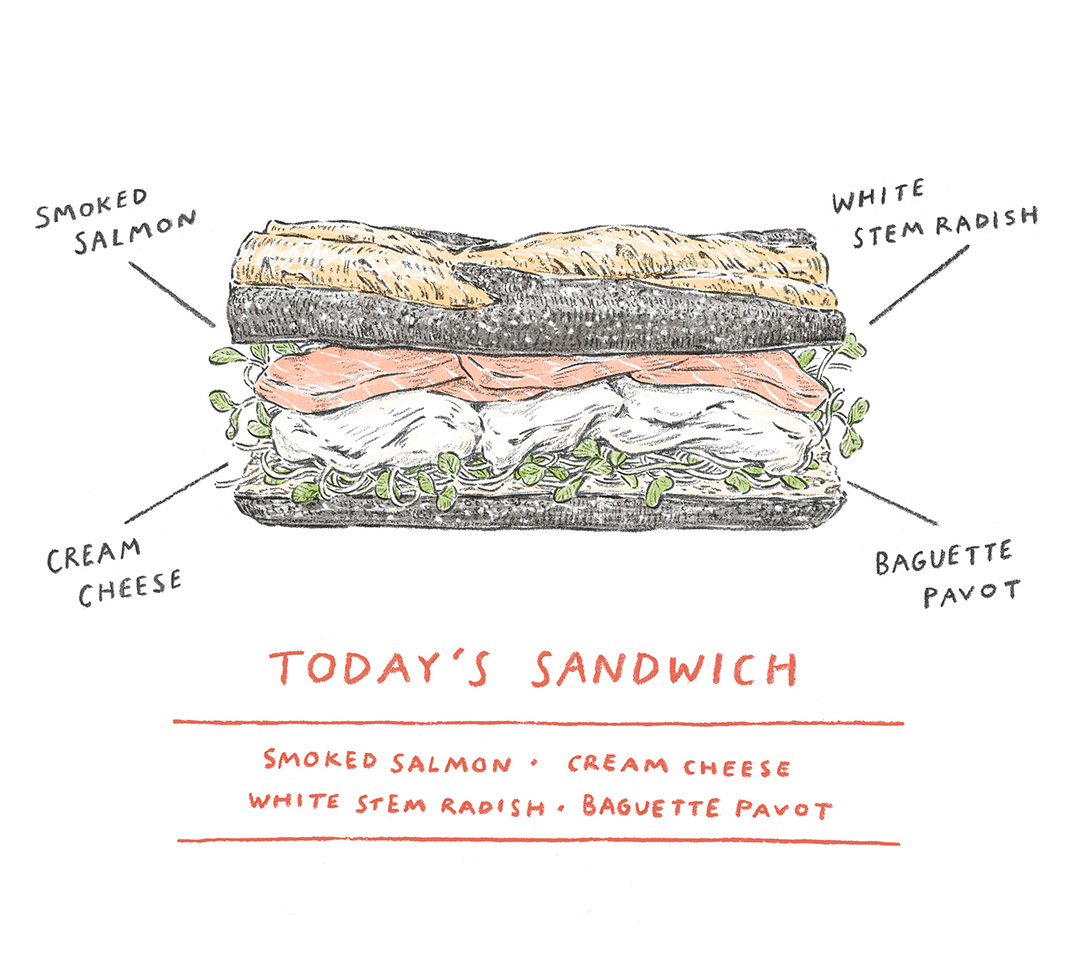 SMOKED
SALMON
WHITE
STEM RADISH
CREAM
CHEESE
BAGUETTE
PAVOT
TODAY'S SANDWICH
SMOKED SALMON · CREAM CHEESE
WHITE STEM RADISH · BAGUETTE PAVOT